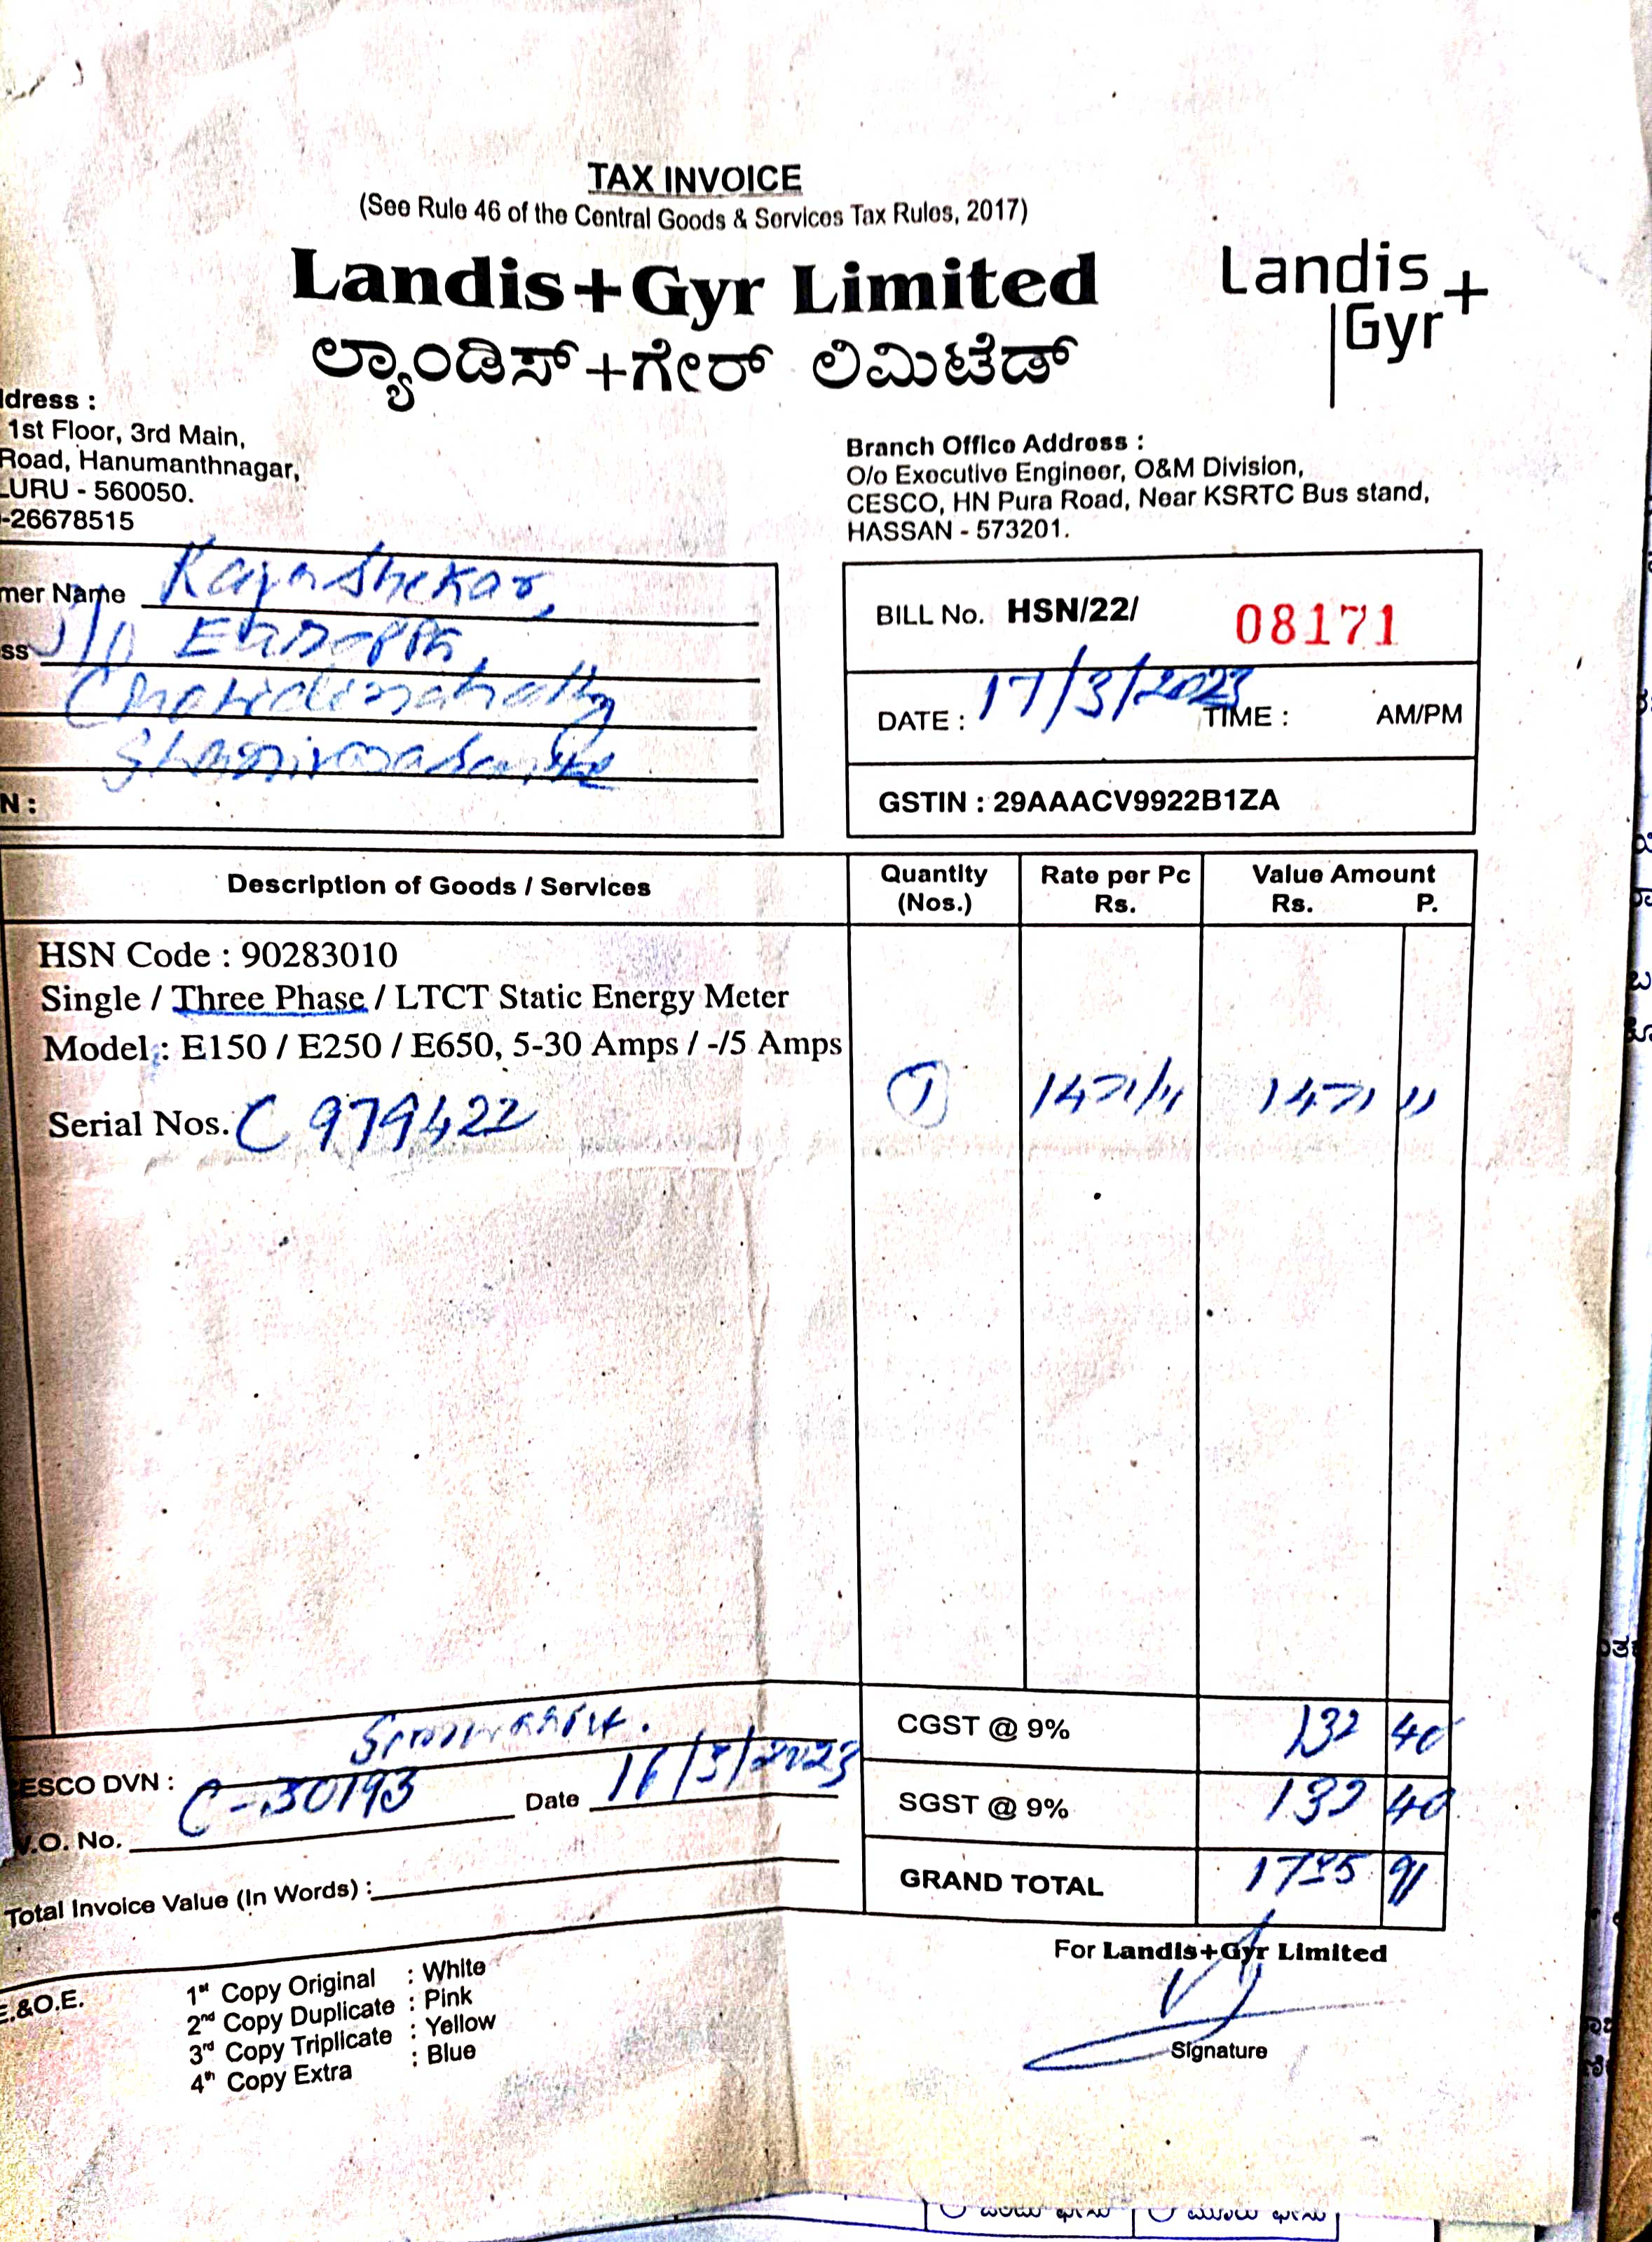 TAX INVOICE
(See Rule 46 of the Central Goods & Services Tax Rules, 2017)
Landis+Gyr Limited
ಲ್ಯಾಂಡಿಸ್+ಗೇರ್ ಲಿಮಿಟೆಡ್
Landis+
Gyr
dress :
1st Floor, 3rd Main,
Road, Hanumanthnagar,
LURU - 560050.
-26678515
Branch Office Address :
O/o Executive Engineer, O&M Division,
CESCO, HN Pura Road, Near KSRTC Bus stand,
HASSAN - 573201.
mer Name Rajashekar,
ss
N :
BILL No. HSN/22/ 08171
DATE : 17/3/2023 TIME : AM/PM
GSTIN : 29AAACV9922B1ZA
Description of Goods / Services Quantity (Nos.) Rate per Pc Rs. Value Amount Rs. P.
HSN Code : 90283010
Single / Three Phase / LTCT Static Energy Meter
Model : E150 / E250 / E650, 5-30 Amps / -/5 Amps
Serial Nos. C 979422 1 1471/" 1471 "
CGST @ 9% 132 40
ESCO DVN :
C-30193 Date 16/3/2023
SGST @ 9% 132 40
.O. No.
GRAND TOTAL 1735 91
Total Invoice Value (In Words) :
For Landis+Gyr Limited
Signature
E.&O.E.
1st Copy Original : White
2nd Copy Duplicate : Pink
3rd Copy Triplicate : Yellow
4th Copy Extra : Blue